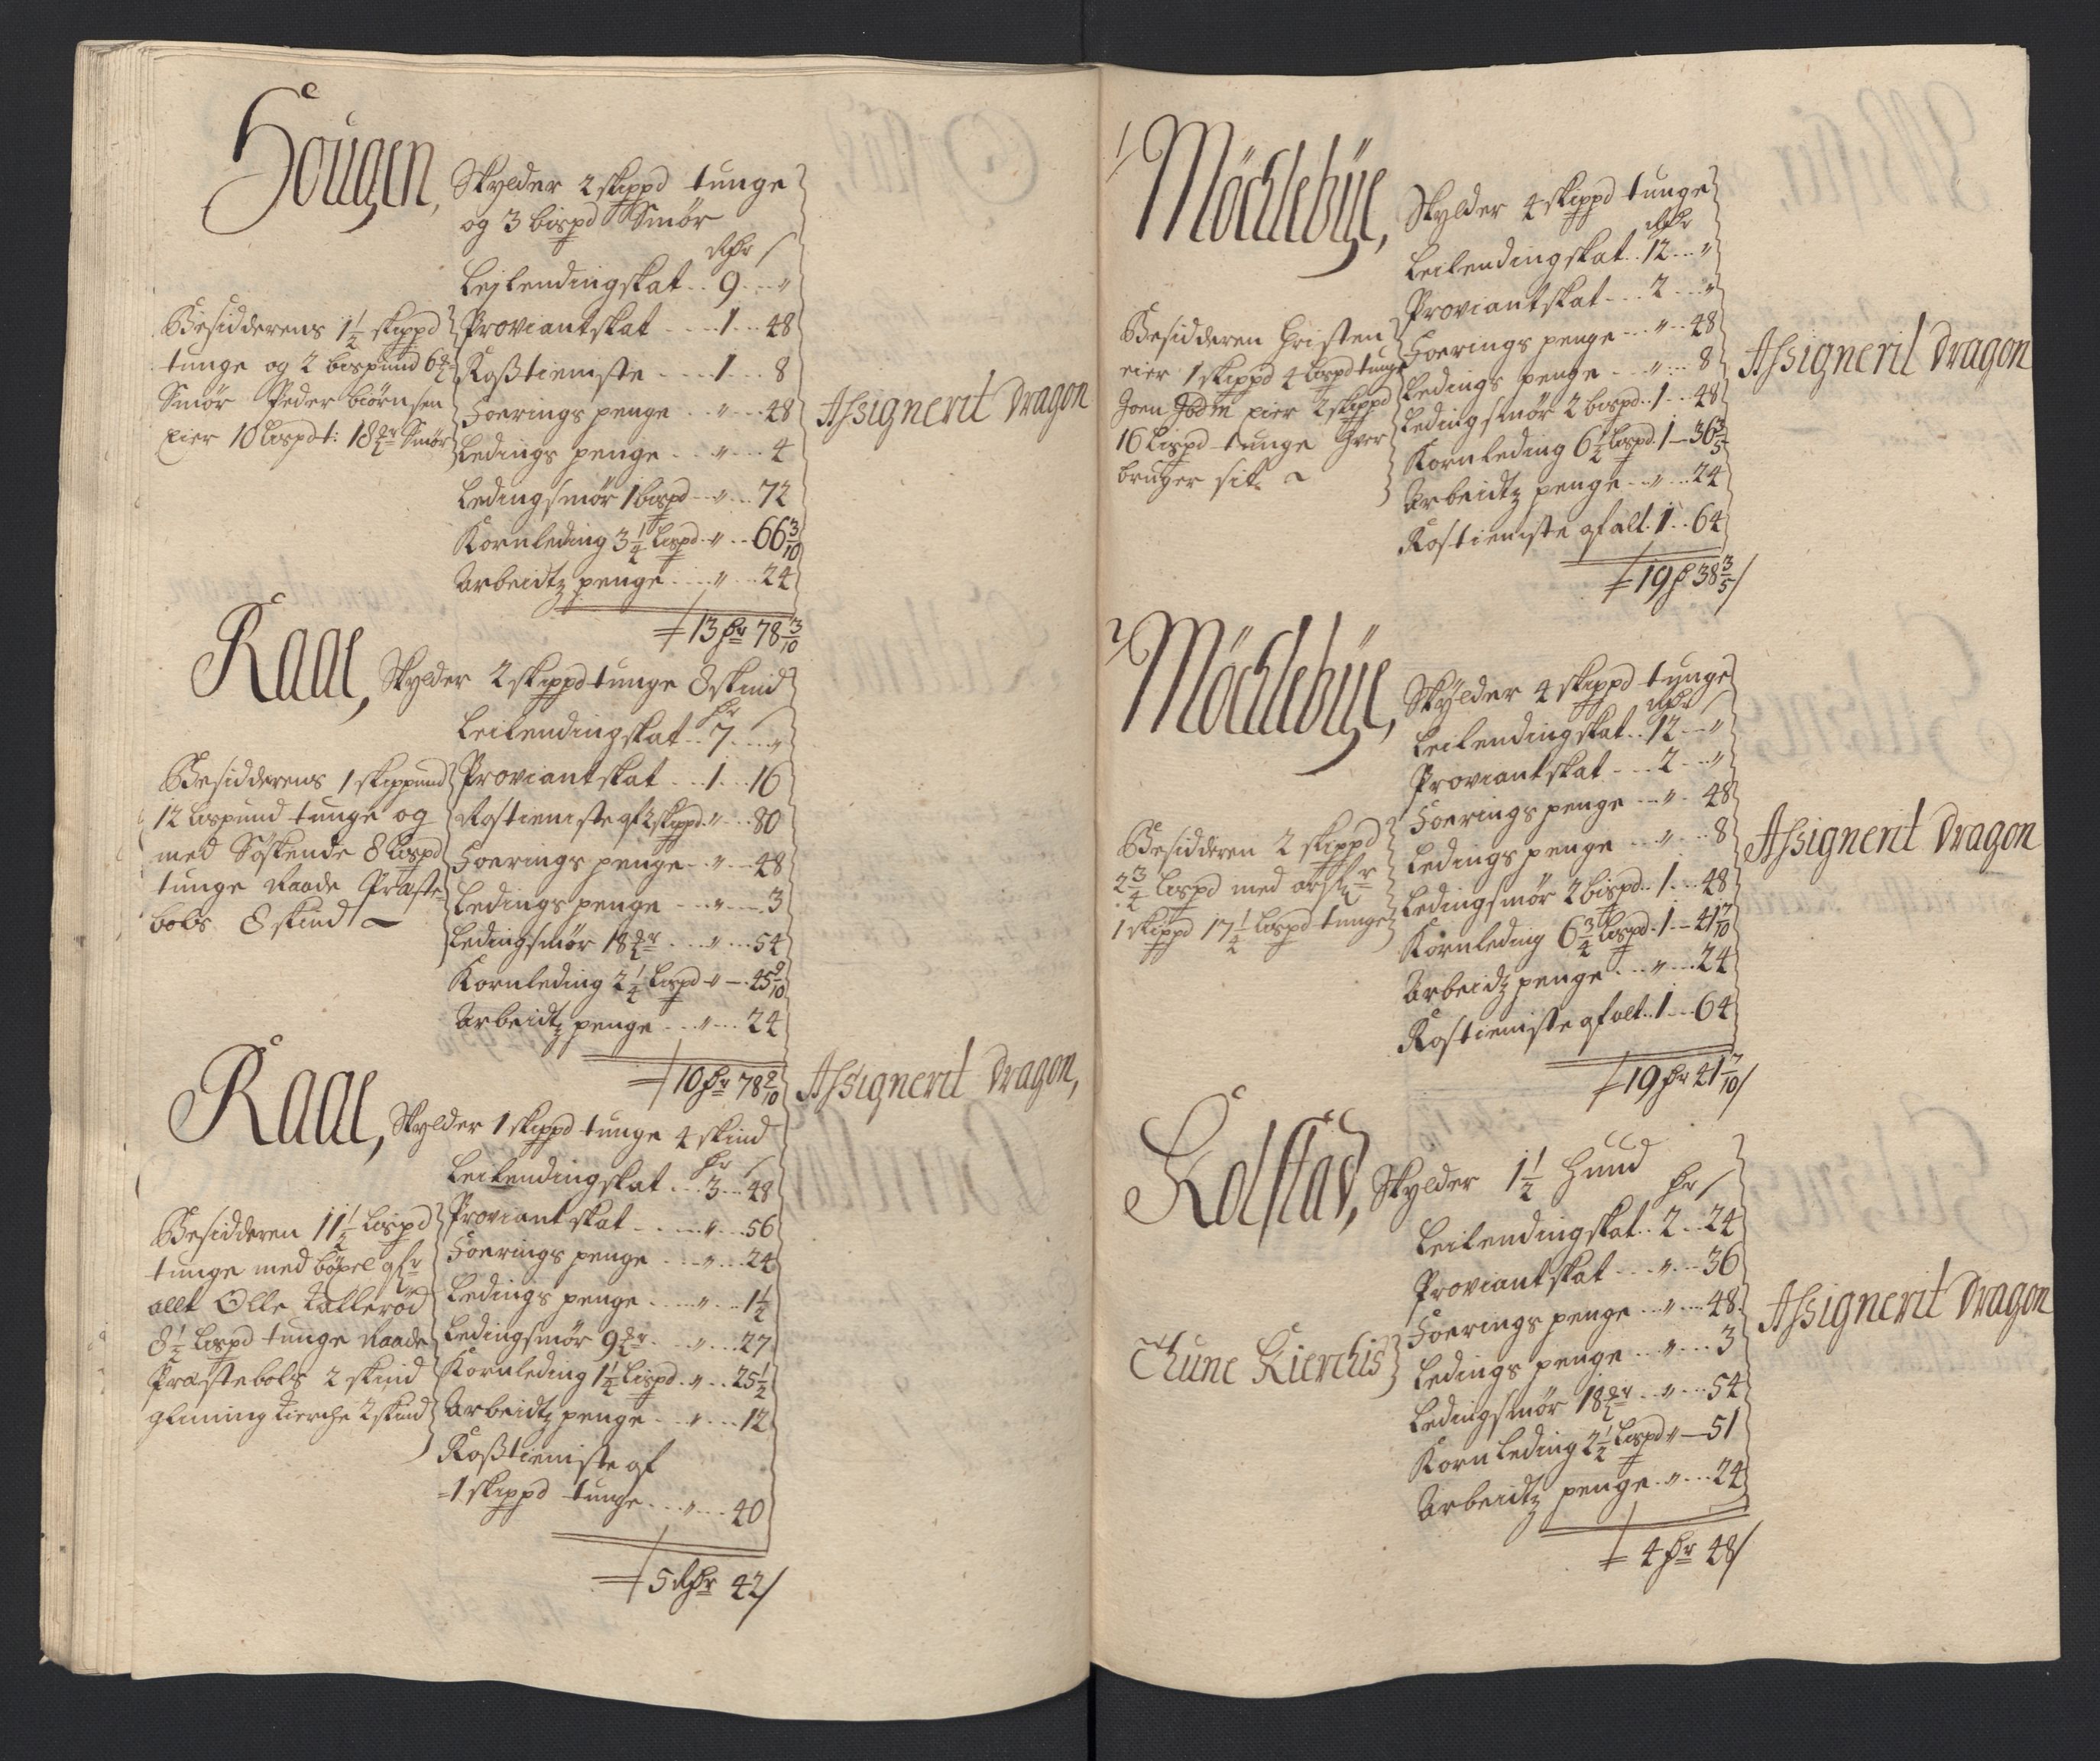 Hougen,
Skylder 2 skippd tunge
og 3 bispd Smør
Rdr /
Lejlendingskat .. 9 .. "
Proviantskat .... 1 ... 48
Roßtieniste .... 1 ... 8
Foerings penge .. " ... 48
Ledings penge ... " ... 4
Ledingsmør 1 bispd -- " ... 72
Kornleding 3 1/4 Lispd .. " .. 66 3/10
Arbeidtz penge .... " ... 24
13 dr 78 3/10
Besidderens 1 1/2 skippd
tunge og 2 bispund 6
Smør Peder biørnsen
Eier 10 Lispd t: 18 Smør
Assignerit Dragon
Raae,
Skylder 2 skippd tunge 8 skind
dr /
Leilendingskat .. 7 .... "
Proviantskat ... 1 .. 16
Rostieniste af 2 skippd .. " ... 80
Foerings penge -- " --- 48
Ledings penge --- " --- 3
Ledingsmør 18 .... " ... 54
Kornleding 2 1/4 Lispd - " -- 45 9/10
Arbeidtz penge ... " ... 24
10 dr 78 9/10
Besidderens 1 skippund
12 Lispund tunge og
med Søskende 8 Lispd
tunge Raade Præste-
bols 8 skind
Assignerit Dragon,
Raae,
Skylder 1 skippd tunge 4 skind
dr /
Leilendingskat ... 3 ... 48
Proviantskat ..... " ... 56
Foerings penge .... " ... 24
Ledings penge ..... " .. 1 1/2
Ledingsmør 9 .... " ... 27
Kornleding 1 1/4 Lispd .. " .. 25 1/2
Arbeidtz penge ... " .... 12
Roßtieniste af
=1 skippd tunge ... " .... 40
5 Rdr 42 /
Besidderen 11 1/2 Lispd
tunge med bøxel
allt Olle
8 1/2 Lispd tunge Raade
Præstebols 2 skind
Glinning Kierche 2 skind
1/ Möchlebÿe,
Skylder 4 skippd tunge
Rdr
Leilendingskat .. 12 ... "
Proviantskat .... 2 .... "
Foerings penge --- " -- 48
Ledings penge ... " ... 8
Ledingsmør 2 bispd .. 1 .. 48
Kornleding 6 1/2 Lispd . 1 -- 36 3/5
Arbeidtz penge ... " ... 24
Rostieniste af alt . 1 .. 64
19 dr 38 3/5 /
Besidderen Christen
eier 1 skippd 4 Lispd tunge
Joen eier 2 skippd
16 Lispd tunge hver
bruger sit
Assignerit Dragon
2/ Möchlebÿe,
Skÿlder 4 skippd tunge
Rdr /
Leilendingskat .. 12 -- "
Proviantskat ... 2 ... "
Foerings penge --- " .. 48
Ledings penge ... " ... 8
Ledingsmør 2 bispd .. 1 ... 48
Kornleding 6 3/4 Lispd . 1 -- 41 7/10
Arbeidtz penge ... " ... 24
Rostieniste af alt .. 1 ... 64
19 dr 41 7/10 /
Besidderen 2 skippd
2 3/4 Lispd med
1 skippd 17 1/4 Lispd tunge
Assignerit Dragon
Kolstad,
Skylder 1 1/2 Hund
dr /
Leilendingskat .. 2 .. 24
Proviantskat .... " ... 36
Foerings penge ... " ... 48
Ledings penge ... " ... 3
Ledingsmør 18 ... " ... 54
Kornleding 2 1/2 Lispd " -- 51
Arbeidtz penge .. " ... 24
4 dr 48 /
Thune Kierchis
Assignerit Dragon